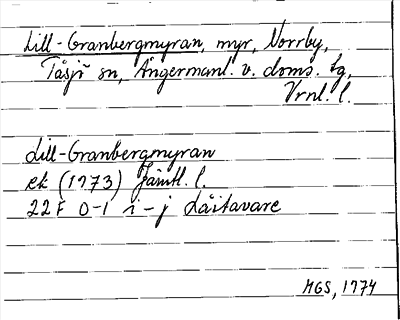 Lill-Granbergmyran, myr, Norrby,
Tåsjö sn, Ångermanl. v. doms. tg,
Vrnl. l.
Lill-Granbergmyran
ek (1973) Jämtl. l.
22F 0-1 i-j Låitavare
MGS, 1974